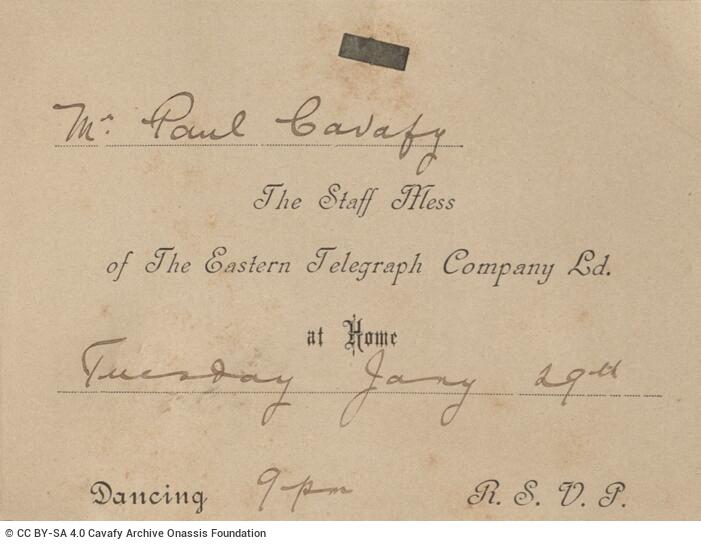 Mr. Paul Cavafy
The Staff Mess
of The Eastern Telegraph Company Ld.
at Home
Tuesday Jany 29th
Dancing 9 pm R. S. V. P.
© CC BY-SA 4.0 Cavafy Archive Onassis Foundation